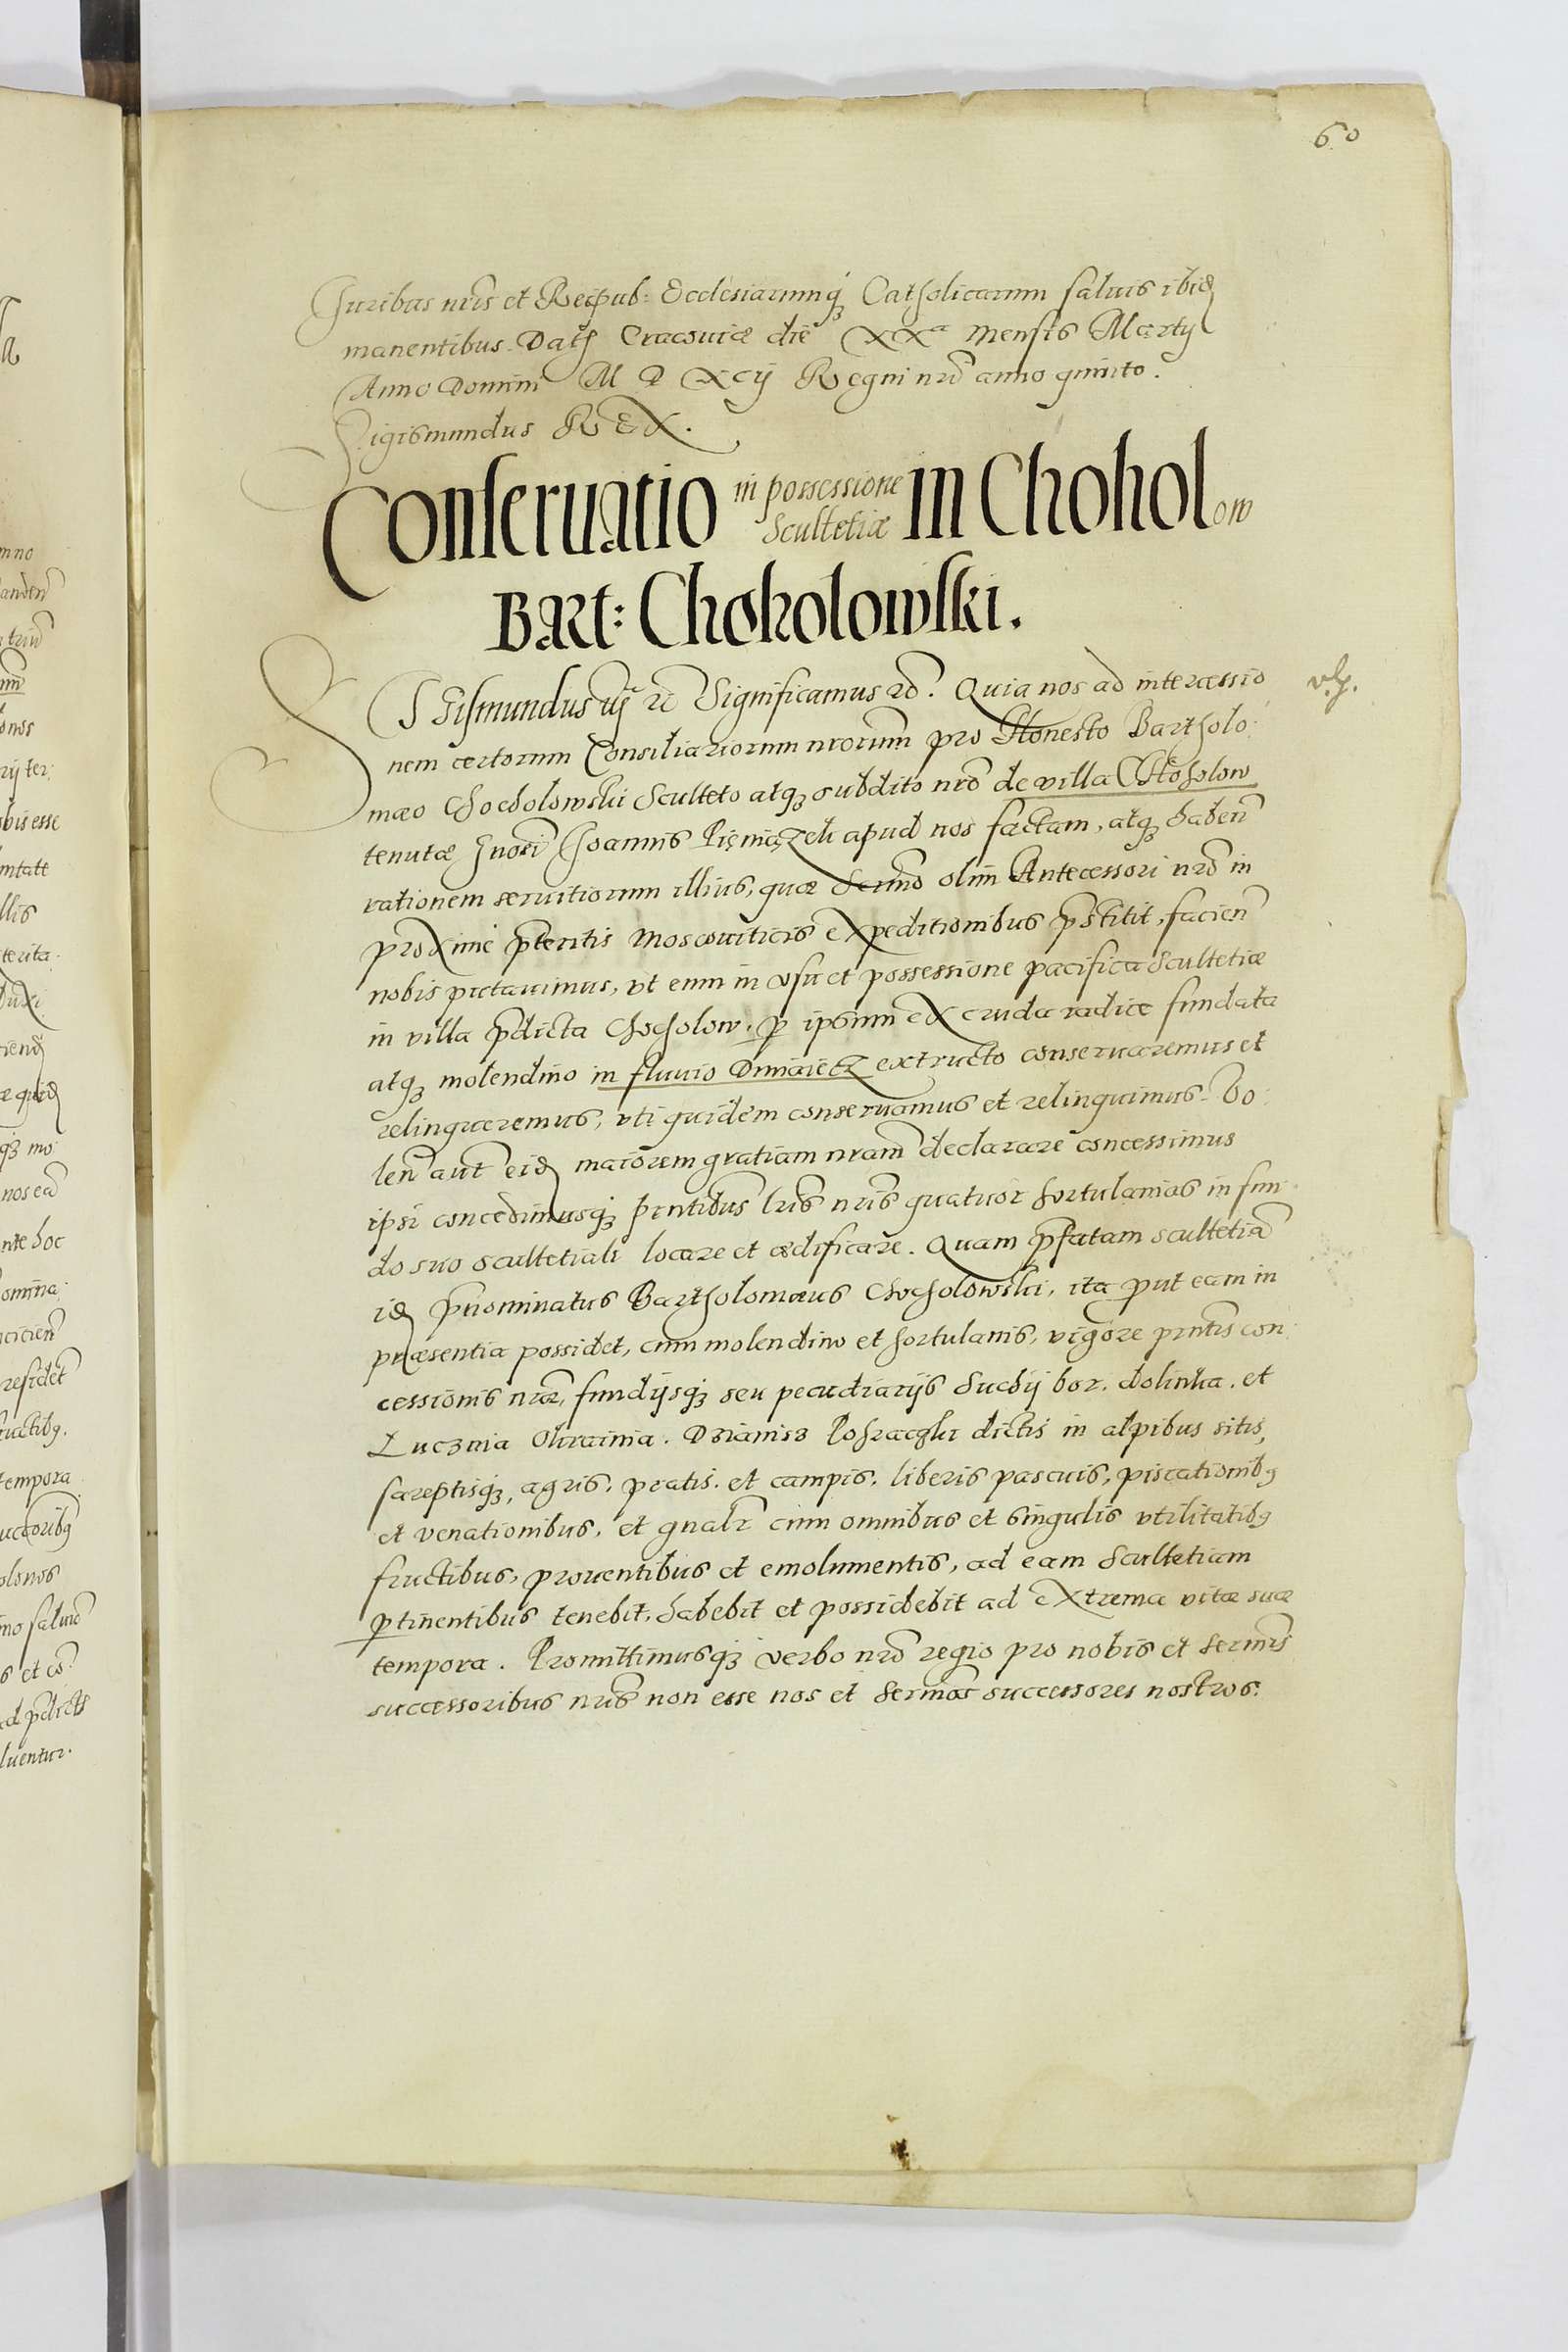 60
Iuribus nris et Reipub: Ecclesiarumq Catholicarum saluis ibid
manentibus. Dat Cracouiæ die XXa Mensis Martij
Anno Domini M D XCij Regni nri anno quinto.
Sigismundus REX.
Conseruatio in possessione Scultetiæ in Chohołow
Bart: Chokolowski.
SIGismundus iij rc Significamus rc. Quia nos ad intercessio
nem certorum Consiliariorum nrorum pro Honesto Bartholo:
mæo Chocholowski Sculteto atq subdito nro de villa Chocholow
tenutæ Gnosi Joannis Pieniązek apud nos factam, atq haben
rationem seruitiorum illius, quæ Sermo olim Antecessori nro in
proxime pteritis Moscouiticis expeditionibus pstitit, facien
nobis putauimus, vt eum in vsu et possessione pacifica Scultetiæ
in villa pdicta Chocholow, p ipsum ex cruda radice fundata
atq molendino in fluuio Dunaiecz extructo conseruaremus et
relinqueremus, vti quidem conseruamus et relinquimus. Vo
len aut eid maiorem gratiam nram declarare concessimus
ipsi concedimusq pntibus lris nris quatuor hortulanos in fun
do suo scultetiali locare et ædificare. Quam pfatam scultetia
id pnominatus Bartholomæus Chocholowski, ita put eam in
præsentia possidet, cum molendino et hortulanis, vigore pntis con
cessionis nræ, fundijsq seu pecudiarijs Suchy bor. dolinka. et
Lucznia Okrainia. dictis in alpibus sitis,
sæptisq, agris, pratis. et campis, liberis pascuis, piscationib
et venationibus, et gnalr cum omnibus et singulis vtilitatib
fructibus, prouentibus et emolumentis, ad eam Scultetiam
ptinentibus tenebit, habebit et possidebit ad extrema vitæ suæ
tempora. Promittimusq verbo nro regio pro nobis et Sermis
successoribus nris non esse nos et Sermos successores nostros